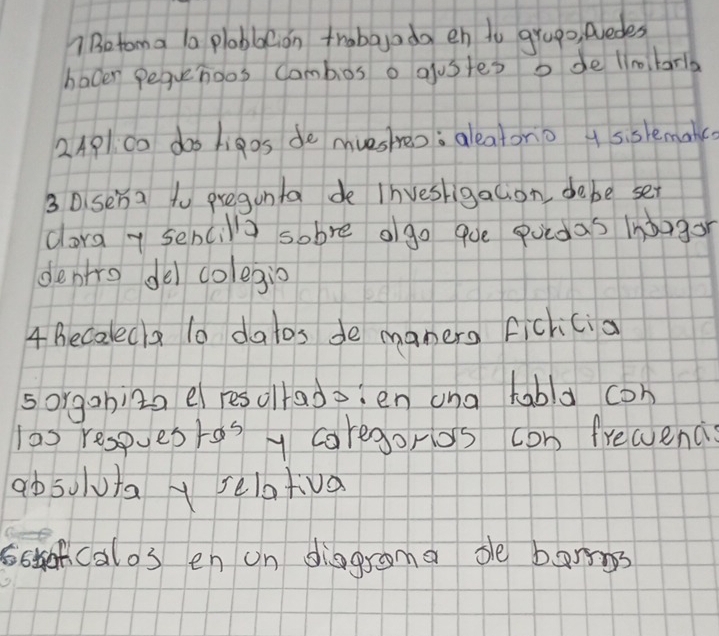 1 Retoma la ploblación trabajada en tu grupo, Puedes
hacer pequeños cambios o ajustes o de limitarla
2 Aplica dos tipos de muestreo: aleatorio y sistematico
3 Diseña tu pregunta de Investigación, debe ser
clara y sencilla sobre algo que puedas Indagar
dentro del colegio
4 Recolecta lo datos de manera ficticia
5 organiza el resultado: en una tabla con
las respuestas y categorias con frecuencias
absuluta y relativa
6 Graficalos en un diagrama de barras